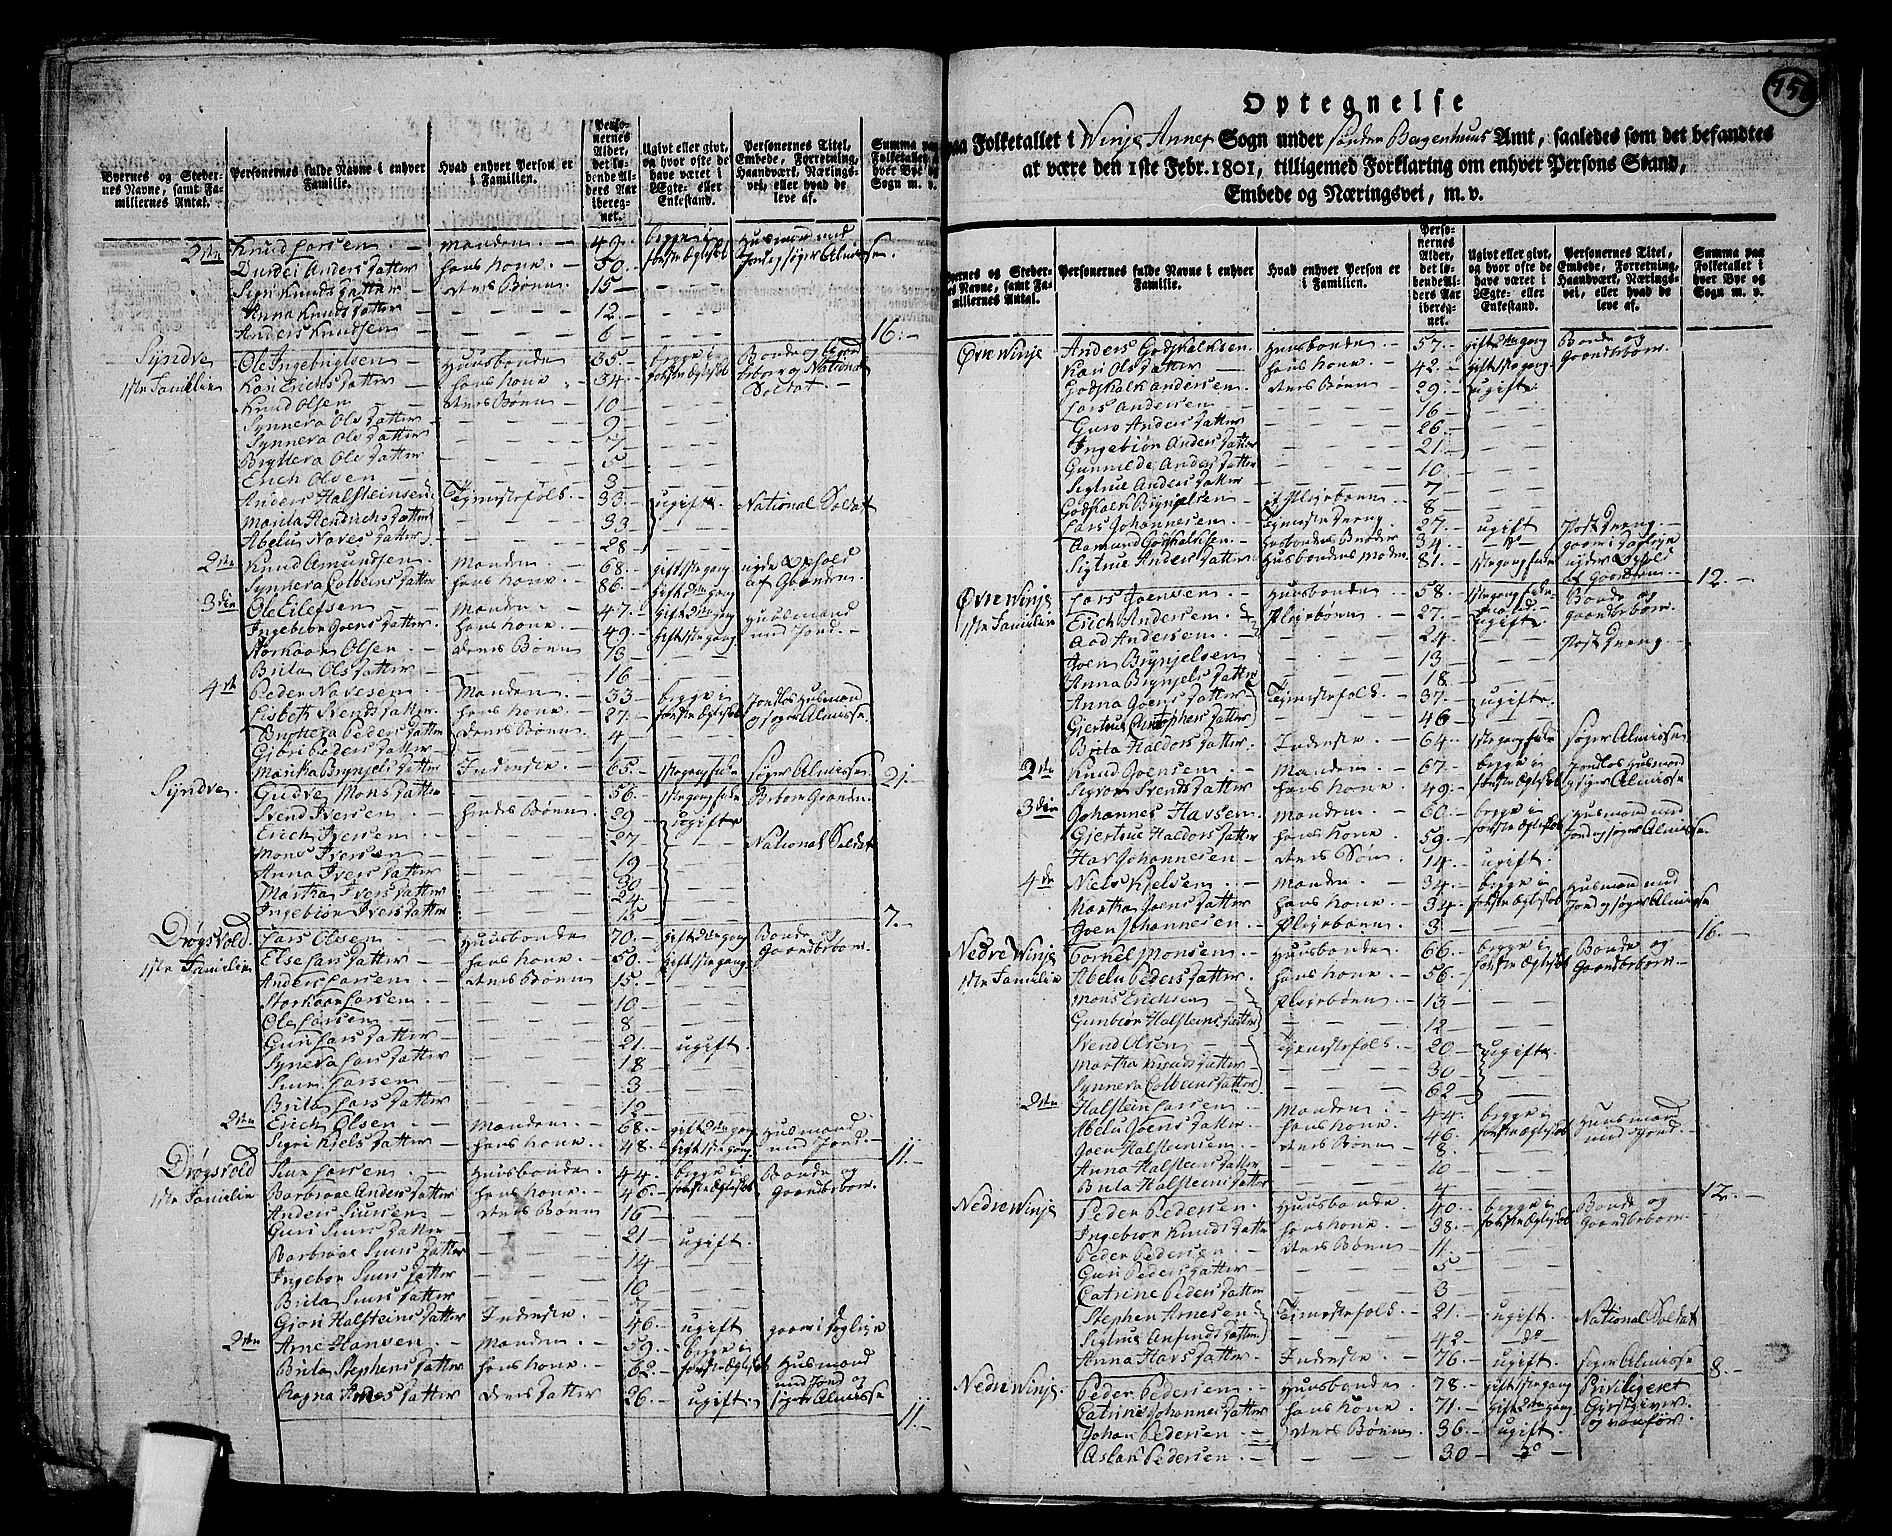 Byernes og Stedernes Navne, samt Familiernes Antal.
Personernes fulde Navne i enhver Familie.
Hvad enhver Person er i Familien.
Personernes Alder, det løbende Alders Aar iberegnet.
Ugivt eller givt, og hvor ofte de have været i Ægte- eller Enkestand.
Personernes Titel, Embede, Forretning, Haandværk, Næringsvei, eller hvad de leve af.
Summa paa Folketallet i hver Bye og Sogn m. v.
2den Knud Larsen Manden 49 begge i Huusmand med
Durdei Anders Datter hans Kone 50 første Ægteskab Jord og søger Almisse
Sigri Knuds Datter deres Børn 15
Anna Knuds Datter 12
Anders Knudsen 6 16
Syndve Ole Ingebrigtsen Huusbonde 35 begge i Bonde og
1ste Familie Kari Erichs Datter hans Kone 34 første Ægteskab National
Knud Olsen deres Børn 10 Soldat
Synneva Ols Datter 9
Synneva Ols Datter 7
Brytteva Ols Datter 5
Erich Olsen 3
Anders Halsteinsen Tjenestefolk 33 ugift National Soldat
Marita Hendrichs Datter 33
Abelu Naves Datter 28
2den Knud Amundsen Manden 68 gift 1ste gang nyde Ophold
Synneva Colbens Datter hans Kone 86 gift 2den gang af Gaarden
3die Ole Eilefsen Manden 47 gift 2den gang Huusmand
Ingebior Joens Datter hans Kone 49 gift 1ste gang med Jord
Olsen deres Børn 13
Brita Ols Datter 16
4de Peder Navesen Manden 33 begge i Jordløs Huusmand
Lisbeth Svends Datter hans Kone 27 første Ægteskab og søger Almisse
Brytteva Peders Datter deres Børn 4
Peders Datter 1
Marita Brynjels Datter Inderste 65 søger Almisse 21
Syndve Gudve Mons Datter 56 Beboer Gaarden
Svend Iversen hendes Børn 29 ugift
Erich Iversen 27 National Soldat
Mons Iversen 19
Anna Ivers Datter 30
Martha Ivers Datter 24
Ingebior Ivers Datter 15 7
Drøgsvold Lars Olsen Huusbonde 70 gift 2den gang Bonde og
1ste Familie Else Lars Datter hans Kone 50 gift 1ste gang Gaardbeboer
Anders Larsen deres Børn 15
Storkaar Larsen 10
Ole Larsen 8
Guri Lars Datter 21 ugift
Syneva Lars Datter 18
Siur Larsen 3
Brita Lars Datter 12
2den Erich Olsen Manden 68 gift 2den gang Huusmand
Sigri Niels Datter hans Kone 48 gift 1ste gang med Jord 11
Drøgsvold Siur Larsen Huusbonde 44 begge i Bonde og
1ste Familie Barbroe Anders Datter hans Kone 46 første Ægteskab Gaardbeboer
Anders Siursen deres Børn 16
Guri Siurs Datter 21 ugift
Barbroe Siurs Datter 14
Ingebor Siurs Datter 10
Brita Siurs Datter 7
Giori Halsteins Datter Inderste 46 ugift gaaer i Dagleje
2den Arne Hansen Manden 59 begge i
Brita Stephens Datter hans Kone 62 første Ægteskab Huusmand
Ragna Arnes Datter deres Datter 26 ugift med Jord og søger Almisse
11
156
Optegnelse
paa Folketallet i Winje Annex Sogn under Sønder Bergenhuus Amt, saaledes som det befandtes
at være den 1ste Febr. 1801, tilligemed Forklaring om enhver Persons Stand,
Embede og Næringsvei, m. v.
Byernes og Stedernes Navne, samt Familiernes Antal.
Personernes fulde Navne i enhver Familie.
Hvad enhver Person er i Familien.
Personernes Alder, det løbende Alders Aar iberegnet.
Ugivt eller givt, og hvor ofte de have været i Ægte- eller Enkestand.
Personernes Titel, Embede, Forretning, Haandværk, Næringsvei, eller hvad de leve af.
Summa paa Folketallet i hver Bye og Sogn m. v.
Øvre Winje Anders Godskalksen Huusbonde 57 gift 2den gang Bonde og
Kari Ols Datter hans Kone 42 gift 1ste gang Gaardbeboer
Godskalk Andersen deres Børn 29 ugift
Lars Andersen 16
Guro Anders Datter 26
Ingebiør Anders Datter 21
Gunnilde Anders Datter 10
Sigtrue Anders Datter 7
Godskalk Brynjelsen Plejebørn 8
Lars Johannesen Tjeneste Dreng 27 ugift Post Dreng
Aamund Godskalksen Husbondens Broder 34 do gaaer i Dagleje
Sigtrue Anders Datter Husbondens Moder 81 nyder Ophold
af Gaarden 12
Øvre Winje Lars Joensen Huusbonde 58 Bonde og
1ste Familie Erich Andersen Plejebørn 27 ugift Gaardbeboer
Aad Andersen 24 Post Dreng
Joen Brynjelsen 13
Anna Brynjels Datter 18
Anna Joens Datter Tjenestefolk 37 ugift
Giertrue Christophers Datter 46
Brita Haldors Datter Inderste 64 søger Almisse
2den Knud Joensen Manden 67 begge i Jordløs Huusmand
Sigvor Svends Datter hans Kone 49 første Ægteskab og søger Almisse
3die Johannes Havsen Manden 60 begge i Huusmand med
Giertrue Haldors Datter hans Kone 59 første Ægteskab Jord og søger Almisse
Hav Johannesen deres Søn 14 ugift
4de Niels Kjelsen Manden 34 begge i Huusmand med
Martha Joens Datter hans Kone 34 første Ægteskab Jord og søger Almisse
Joen Johannesen Plejebørn 3 16
Nedre Winje Torkel Monsen Huusbonde 66 begge i Bonde og
1ste Familie Abelu Peders Datter hans Kone 56 første Ægteskab Gaardbeboer
Mons Erichsen Plejebørn 13
Gunbior Halsteins Datter 12
Svend Olsen Tjenestefolk 20 ugift
Martha Knuds Datter 30
Synneva Colbens Datter 62
2den Halstein Larsen Manden 44 begge i Huusmand
Abelu Joens Datter hans Kone 46 første Ægteskab med Jord
Joen Halsteinsen deres Børn 8
Anna Halsteins Datter 10
Brita Halsteins Datter 4 12
Nedre Winje Peder Pedersen Huusbonde 40 begge i Bonde og
Ingebior Knuds Datter hans Kone 38 første Ægteskab Gaardbeboer
Peder Pedersen deres Børn 11
Guri Peders Datter 5
Catrine Peders Datter 3
Stephen Arnesen Tjenestefolk 21 ugift National Soldat
Sigtrue Datter 42 do
Anna Havs Datter Inderste 76 ugift søger Almisse 8
Nedre Winje Peder Pedersen Huusbonde 78 gift 1ste gang Priviligeret
Catrine Johannes Datter hans Kone 71 gift 2den gang Giestgiver
Johan Pedersen deres Børn 36 ugift
Aslak Pedersen 30 do